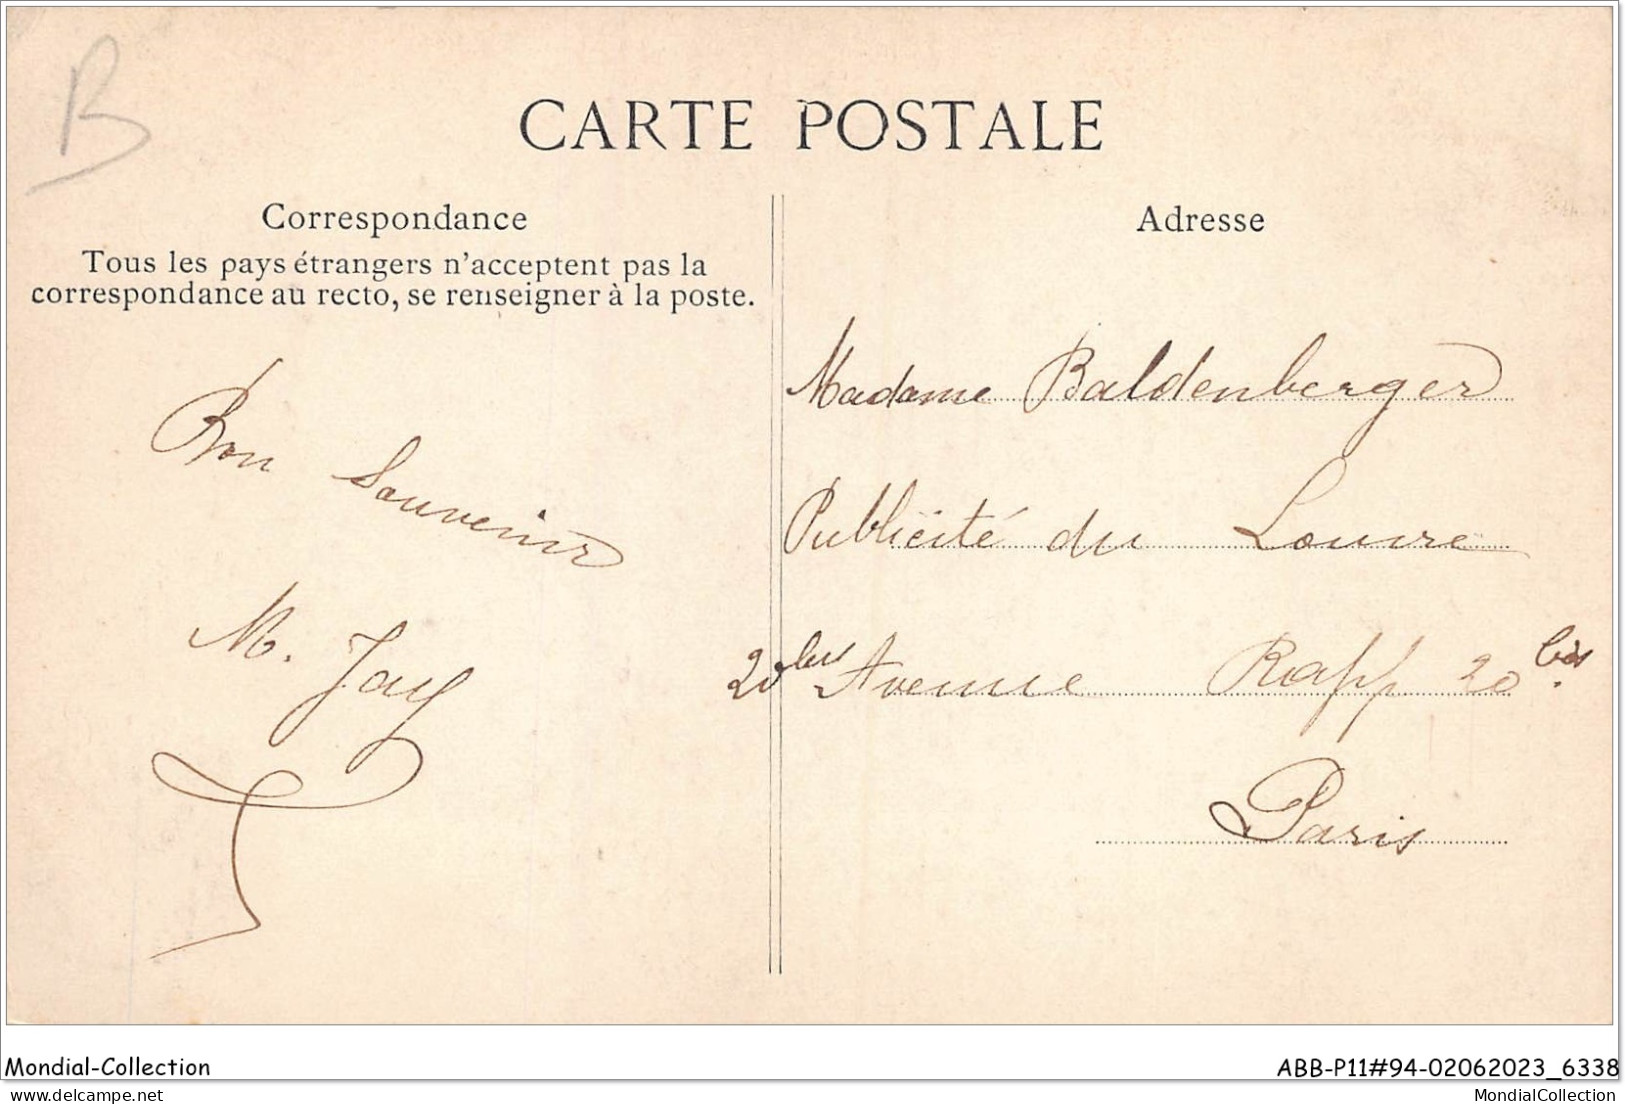 B
CARTE POSTALE
Correspondance
Tous les pays étrangers n'acceptent pas la
correspondance au recto, se renseigner à la poste.
Bon Souvenir
M. Jay
Adresse
Madame Baldenberger
Publicité du Louvre
20 bis Avenue Rapp 20 bis.
Paris
Mondial-Collection
ABB-P11#94-02062023_6338
delcampe.net
MondialCollection